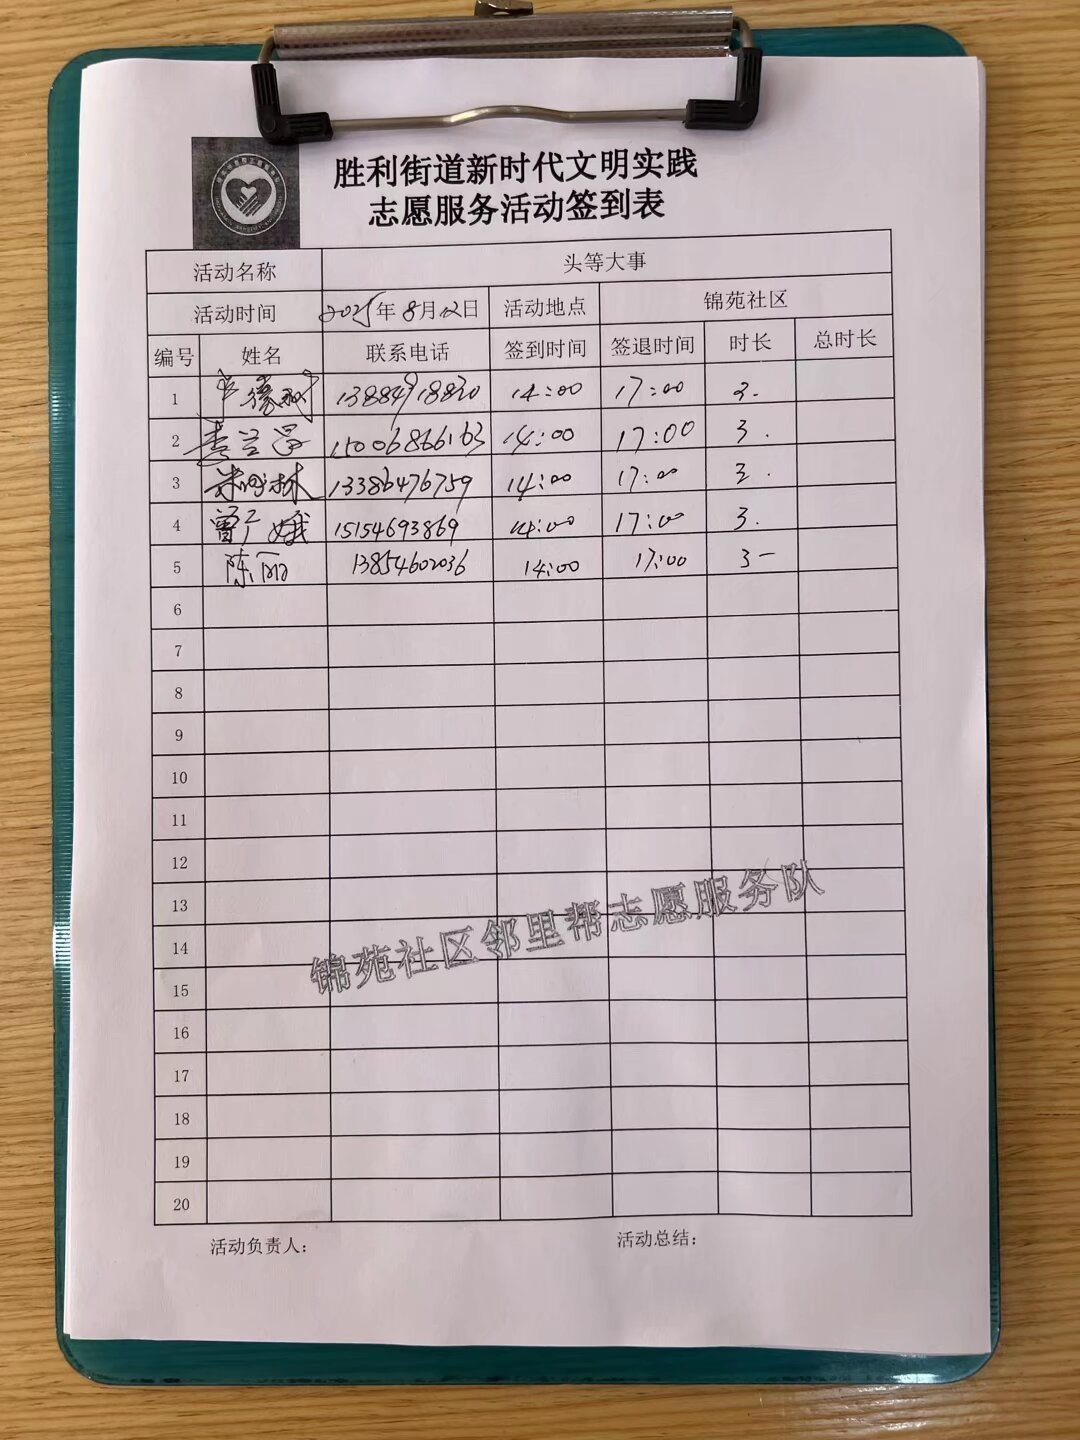 胜利街道新时代文明实践
志愿服务活动签到表
活动名称 头等大事
活动时间 2025年8月12日 活动地点 锦苑社区
编号 姓名 联系电话 签到时间 签退时间 时长 总时长
1 13884918830 14:00 17:00 3.
2 15006866163 14:00 17:00 3.
3 13386476759 14:00 17:00 3.
4 曾广娥 15154693869 14:00 17:00 3.
5 陈丽 13854602036 14:00 17:00 3
6
7
8
9
10
11
12
13
14
锦苑社区邻里帮志愿服务队
15
16
17
18
19
20
活动负责人: 活动总结: